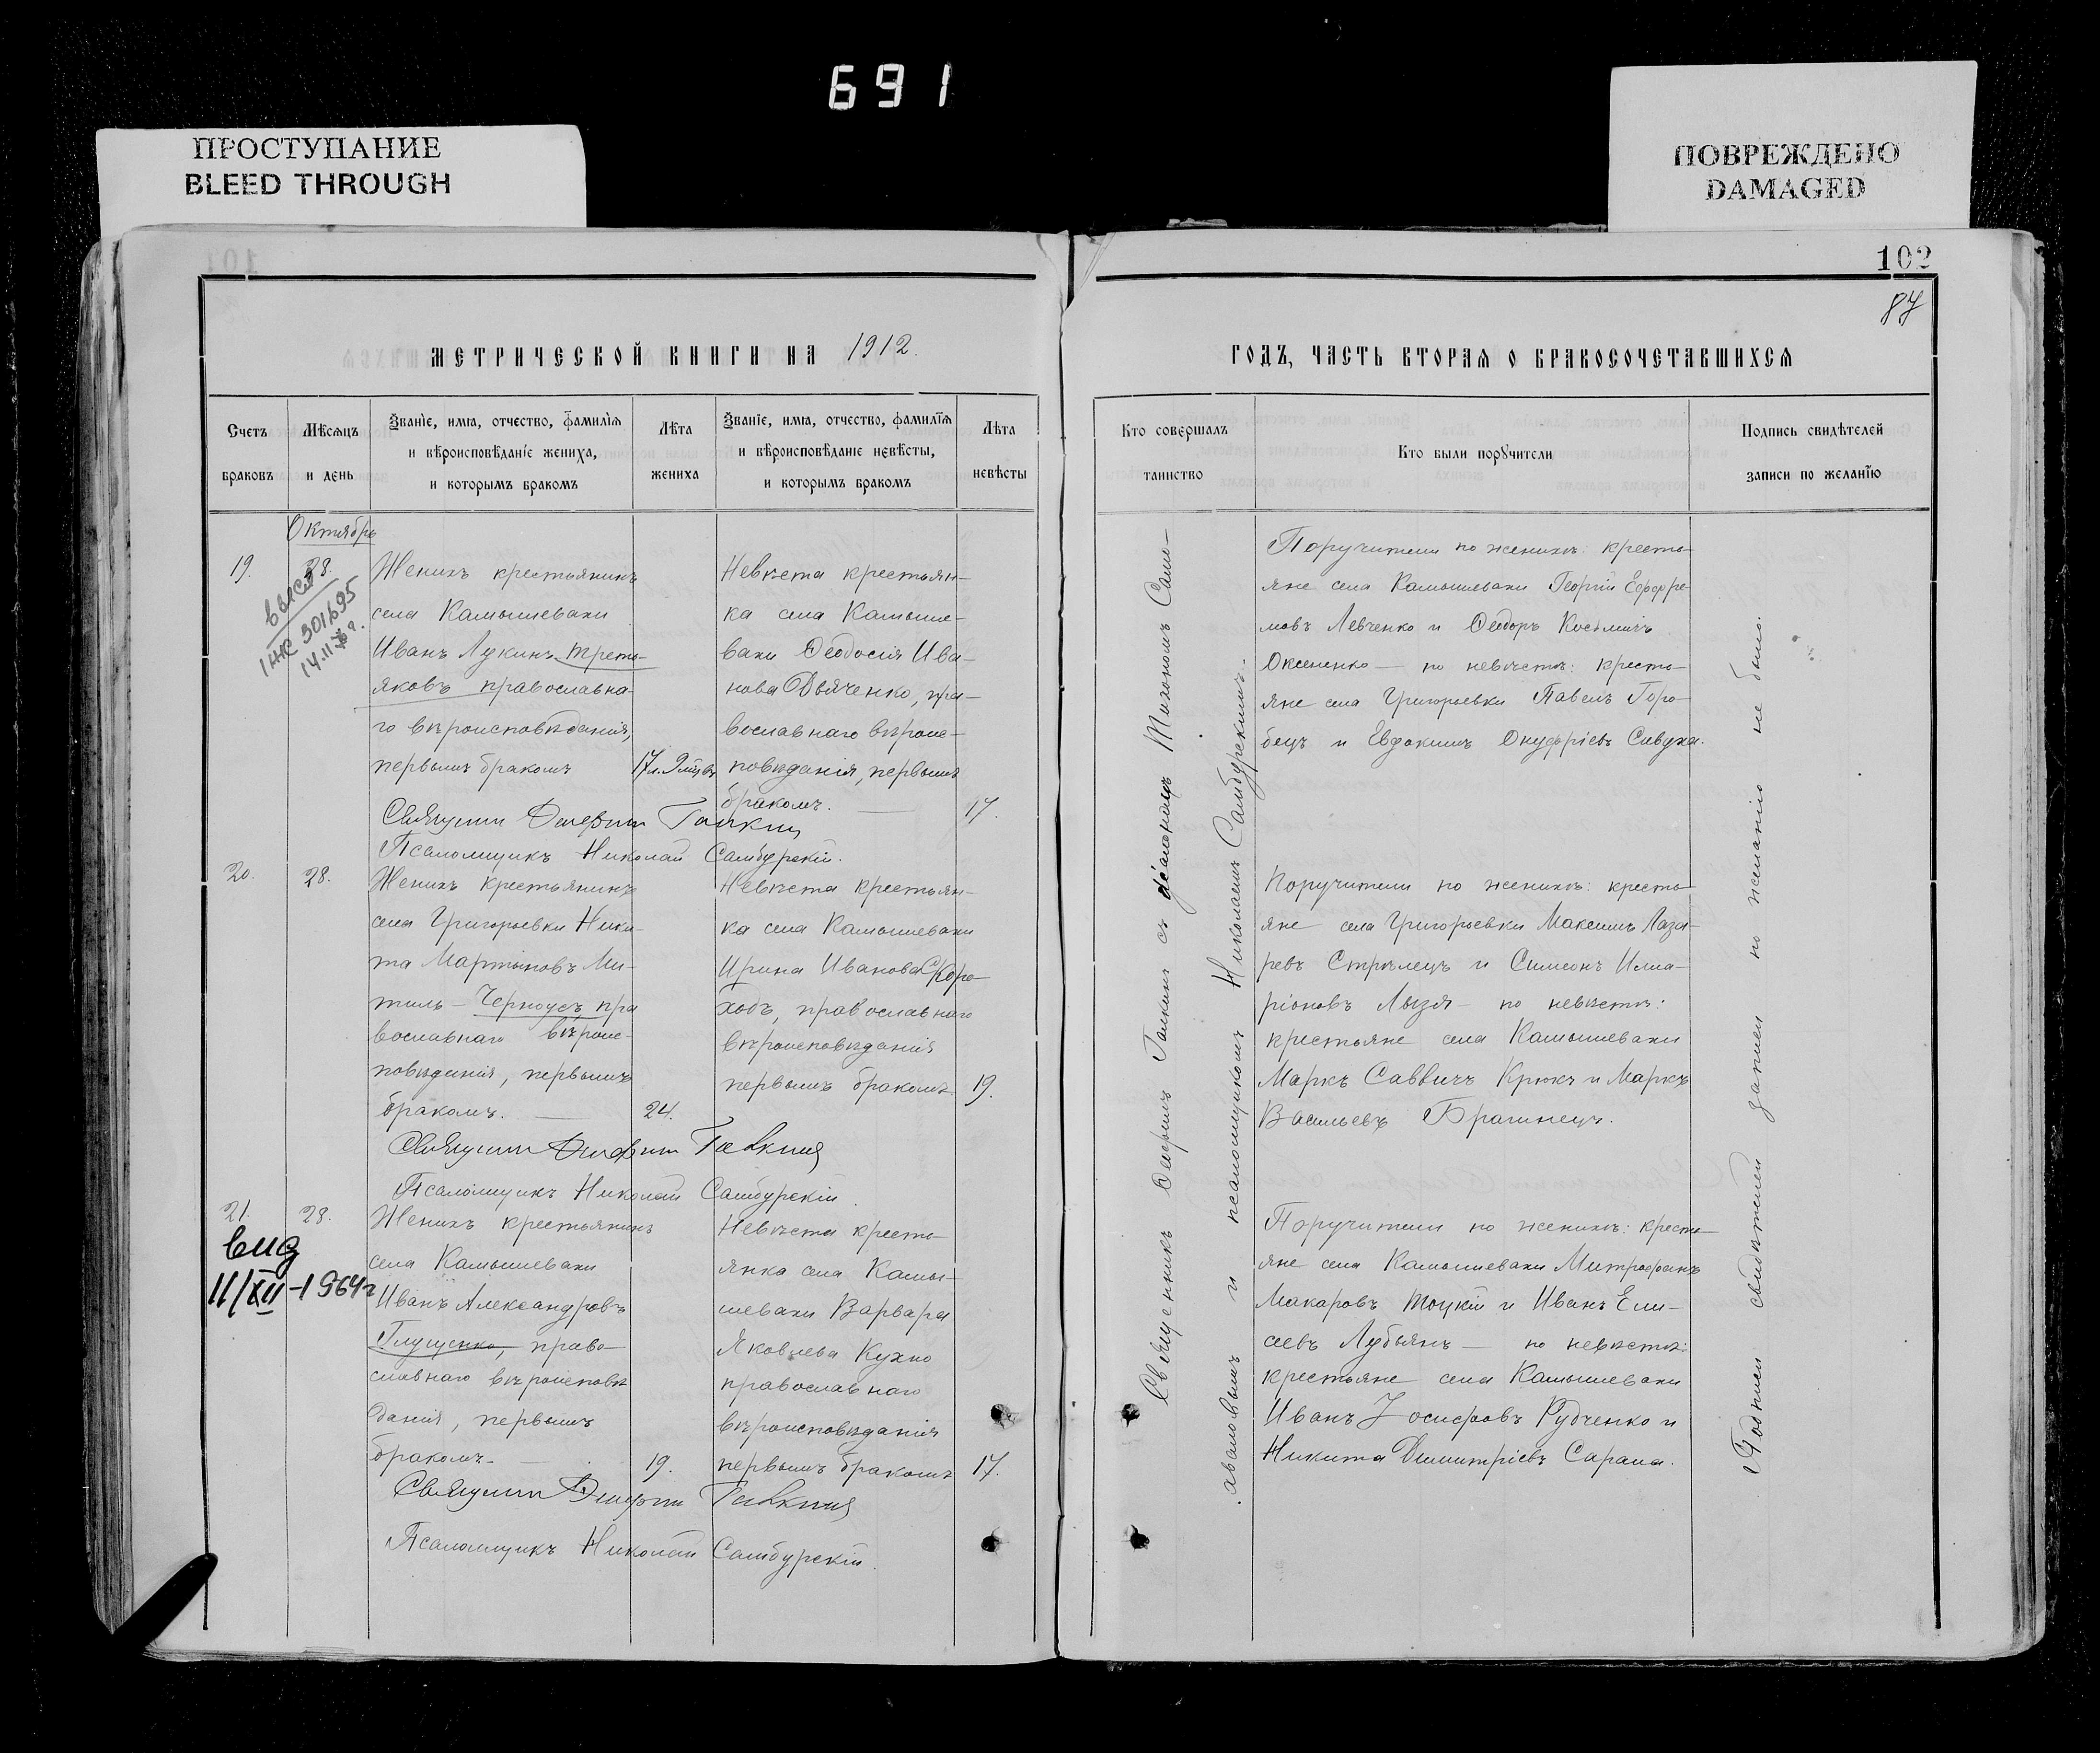 691
ПРОСТУПАНИЕ
BLEED THROUGH
ПОВРЕЖДЕНО
DAMAGED
102
87
МЕТРИЧЕСКОЙ КНИГИ НА 1912.
ГОДЪ, ЧАСТЬ ВТОРАЯ О БРАКОСОЧЕТАВШИХСЯ
Счетъ
браковъ
Мѣсяцъ
и день
Званіе, имя, отчество, фамилія
и вѣроисповѣданіе жениха,
и которымъ бракомъ
Лѣта
жениха
Званіе, имя, отчество, фамилія
и вѣроисповѣданіе невѣсты,
и которымъ бракомъ
Лѣта
невѣсты
Кто совершалъ
таинство
Кто были поручители
Подпись свидѣтелей
записи по желанію
Октябрь
19.
28.
301695
Женихъ крестьянинъ
села Камышевахи
Иванъ Лукинъ Треть-
яковъ православна-
го вѣроисповѣданія,
первымъ бракомъ
17 л.
Невѣста крестьян-
ка села Камыше-
вахи Ѳеодосія Ива-
нова Дьяченко, пра-
вославнаго вѣроис-
повѣданія, первымъ
бракомъ.
17.
Псаломщикъ Николай Самбурскій.
Поручители по женихѣ: кресть-
яне села Камышевахи Георгій Ефре-
мовъ Левченко и Ѳеодоръ Косьмичъ
Оксененко — по невѣстѣ: кресть-
яне села Григорьевки Павелъ Горо-
бецъ и Евдокимъ Онуфріевъ Сивуха.
20.
28.
Женихъ крестьянинъ
села Григорьевки Ники-
та Мартыновъ Ми-
тиль - Черноусъ пра
вославнаго вѣроис-
повѣданія, первымъ
бракомъ.
24.
Невѣста крестьян-
ка села Камышевахи
Ирина Иванова Скоро-
ходъ, православнаго
вѣроисповѣданія
первымъ бракомъ
19.
Псаломщикъ Николай Самбурскій.
Поручители по женихѣ: кресть-
яне села Григорьевки Максимъ Лаза-
ревъ Стрѣлецъ и Симеонъ Илла-
ріоновъ Лызя — по невѣстѣ:
крестьяне села Камышевахи
Маркъ Саввичъ Крюкъ и Маркъ
Васильевъ Брагинецъ.
21.
28.
вид
11/XII-1964г
Женихъ крестьянинъ
села Камышевахи
Иванъ Александровъ
Глущенко, право-
славнаго вѣроисповѣ
данія, первымъ
бракомъ.
19.
Невѣста кресть-
янка села Камы-
шевахи Варвара
Яковлева Кухно
православнаго
вѣроисповѣданія
первымъ бракомъ
17.
Псаломщикъ Николай Самбурскій.
Поручители по женихѣ: кресть-
яне села Камышевахи Митрофанъ
Макаровъ Тоцкій и Иванъ Ели-
сеевъ Лубянъ — по невѣстѣ:
крестьяне села Камышевахи
Иванъ Іосифовъ Рудченко и
Никита Димитріевъ Сарана.
Священникъ съ діакономъ Тихономъ
и псаломщикомъ Николаемъ Самбурскимъ.
Подписи свидѣтелей записи по желанію не было.